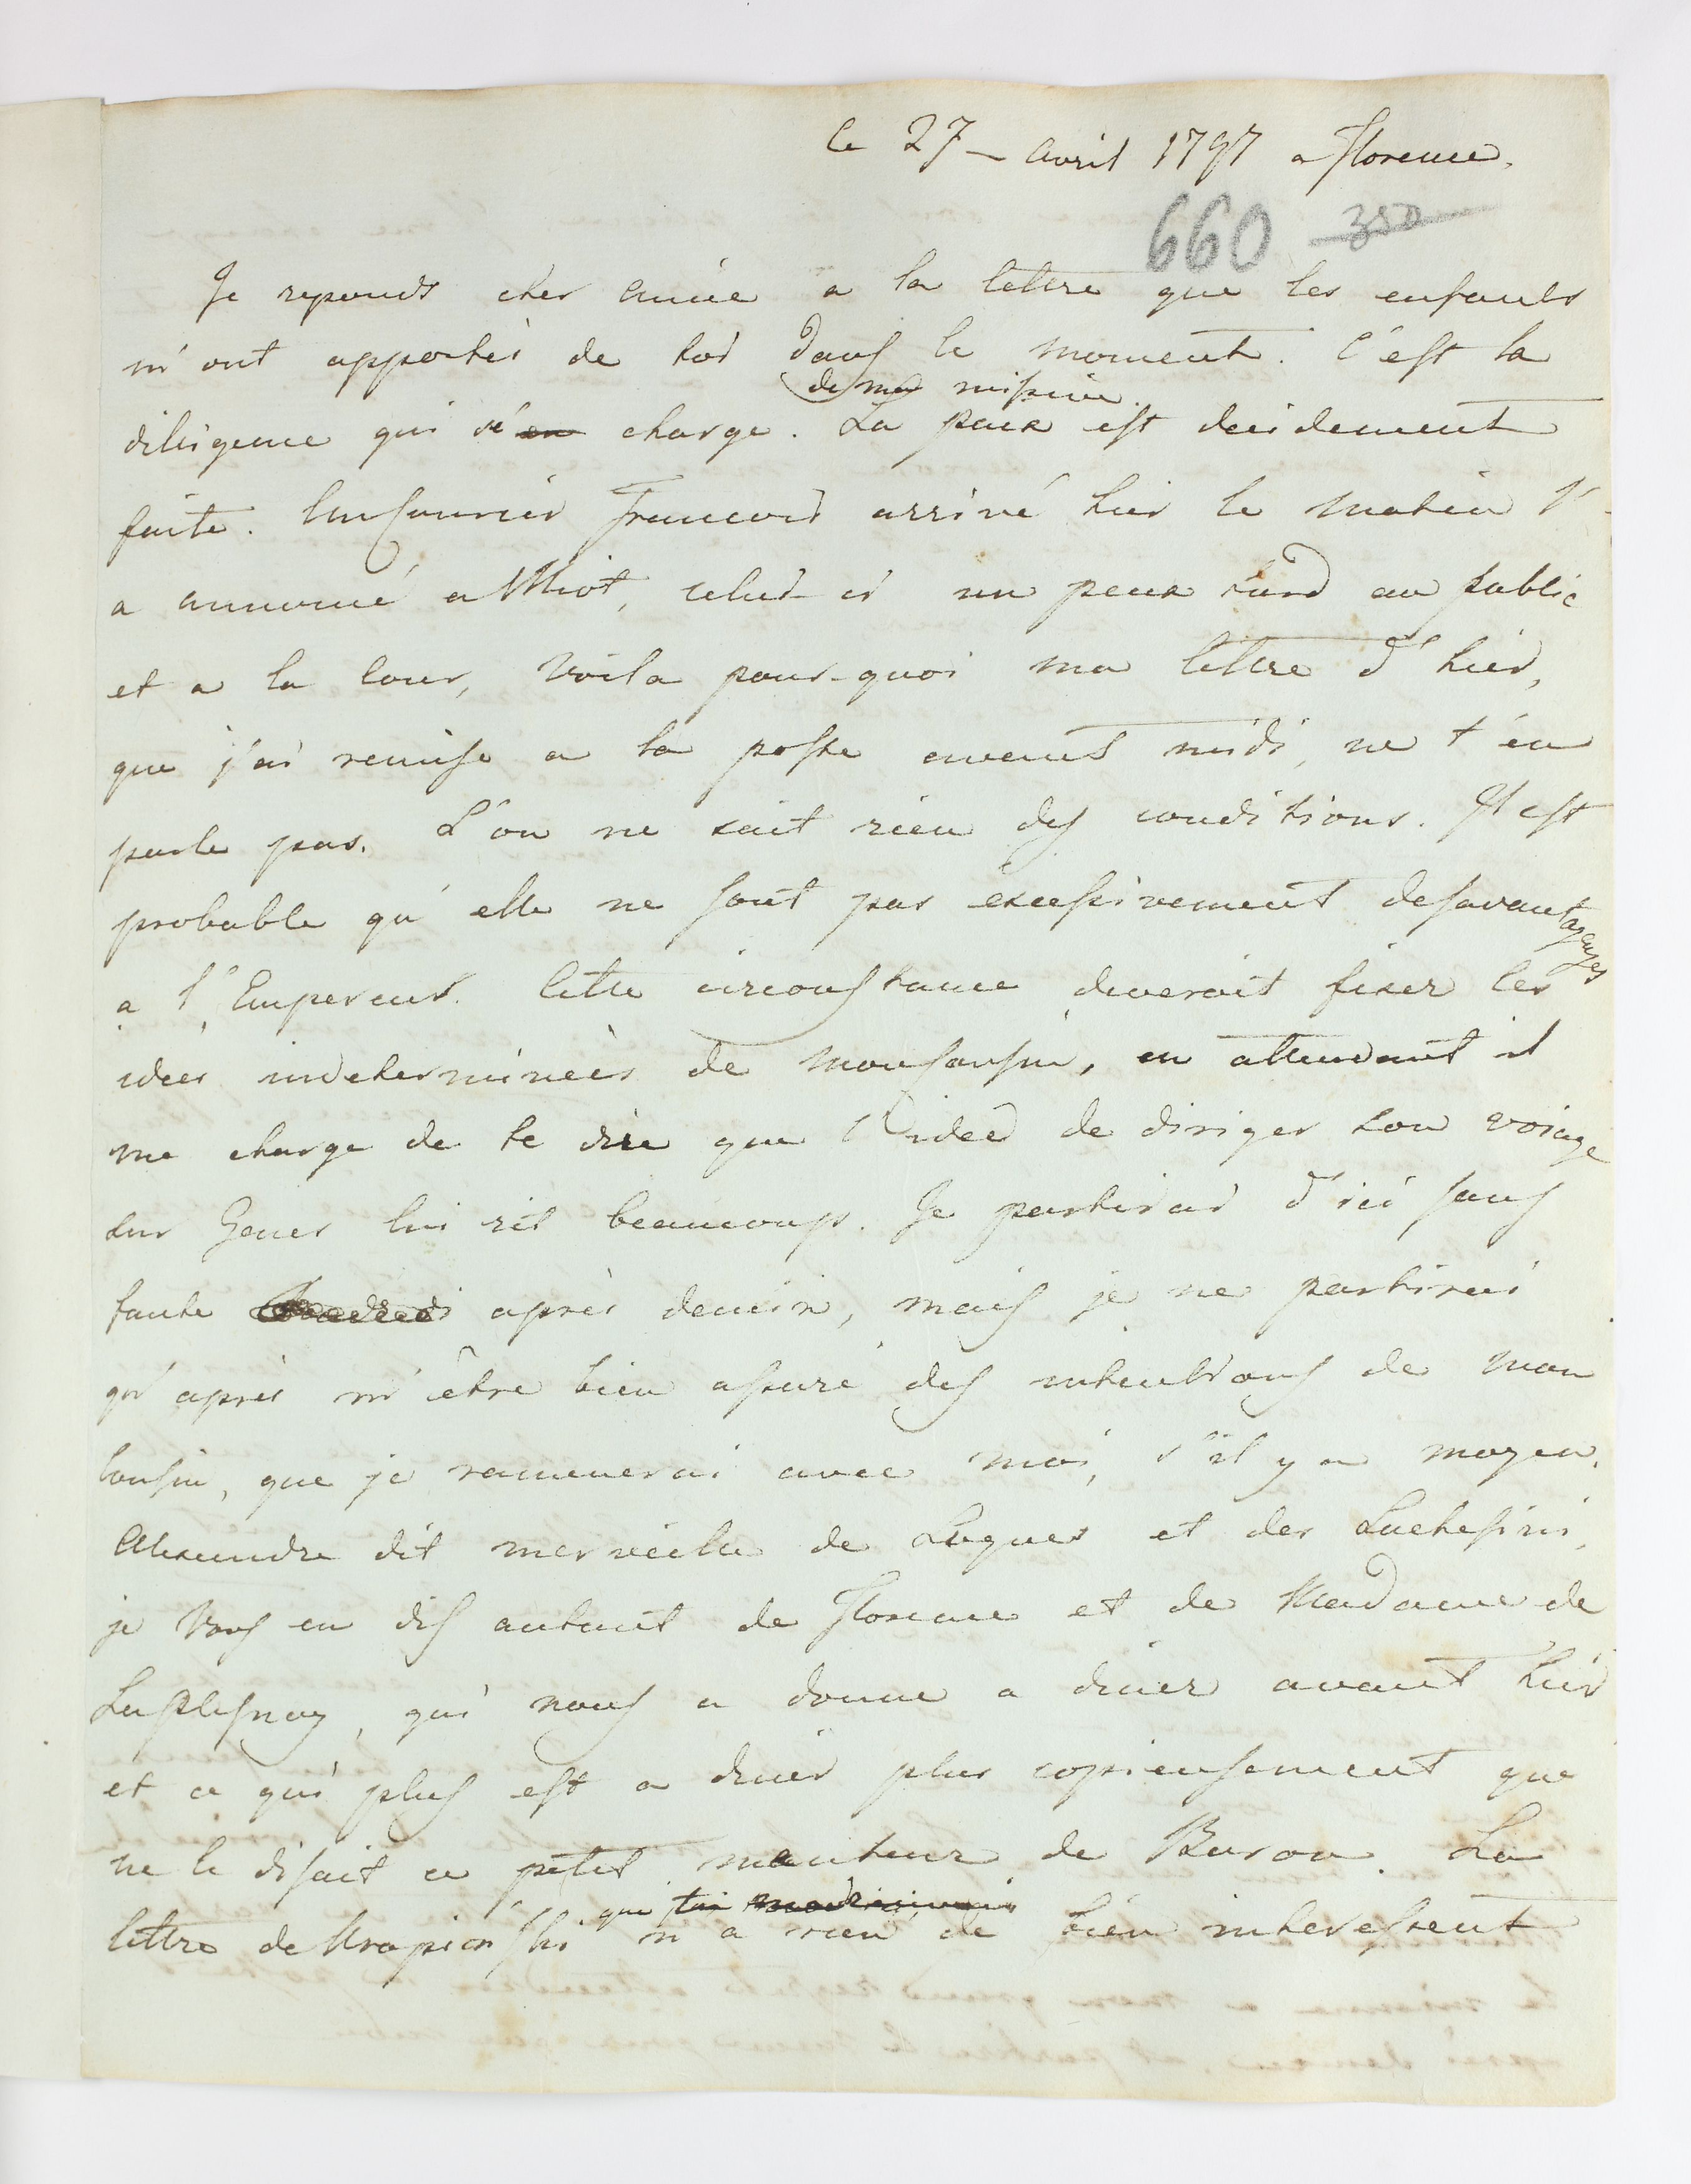 le 27 – Avril 1797 a Florence.
660 350
Je reponds cher amie a la lettre que les enfants
m'ont apportès de toi dans le moment. C'est la
de ma missive.
diligence qui sé en charge. La paix est decidement
faite. Un Courier Francois arrivé hier le matin l'
a annoncé a Miot, celui-ci un peux tard au public
et a la Cour, Voila pour-quoi ma lettre d'hier,
que j'ai remise a la poste avant midi, ne t'en
parle pas. L'on ne sait rien des conditions. Il est
probable qu'elle ne sont pas excessivement desavantageuses
a l'Empereur. Cette circonstance deveroit fixer les
idées indeterminèes de Mon Cousin, en attendant il
me charge de te dire que l'ideè de diriger ton voiage
sur Genes lui rit beaucoup. Je partirai d'ici sans
faute après demain, mais je ne partirai
qu'après m'être bien assuré des intentions de Mon
Cousin, que je ramenerai avec moi, s'il y a moyen.
Alexandre dit merveille de Luques et des Luchesini,
je Vous en dis autant de Florence et de Madame de
qui nous a donne a diner avant hier
et ce qui plus est a diner plus copieusement que
ne le disait ce petit manteur de Baron. La
que
lettre de n'a rien de bien interessent